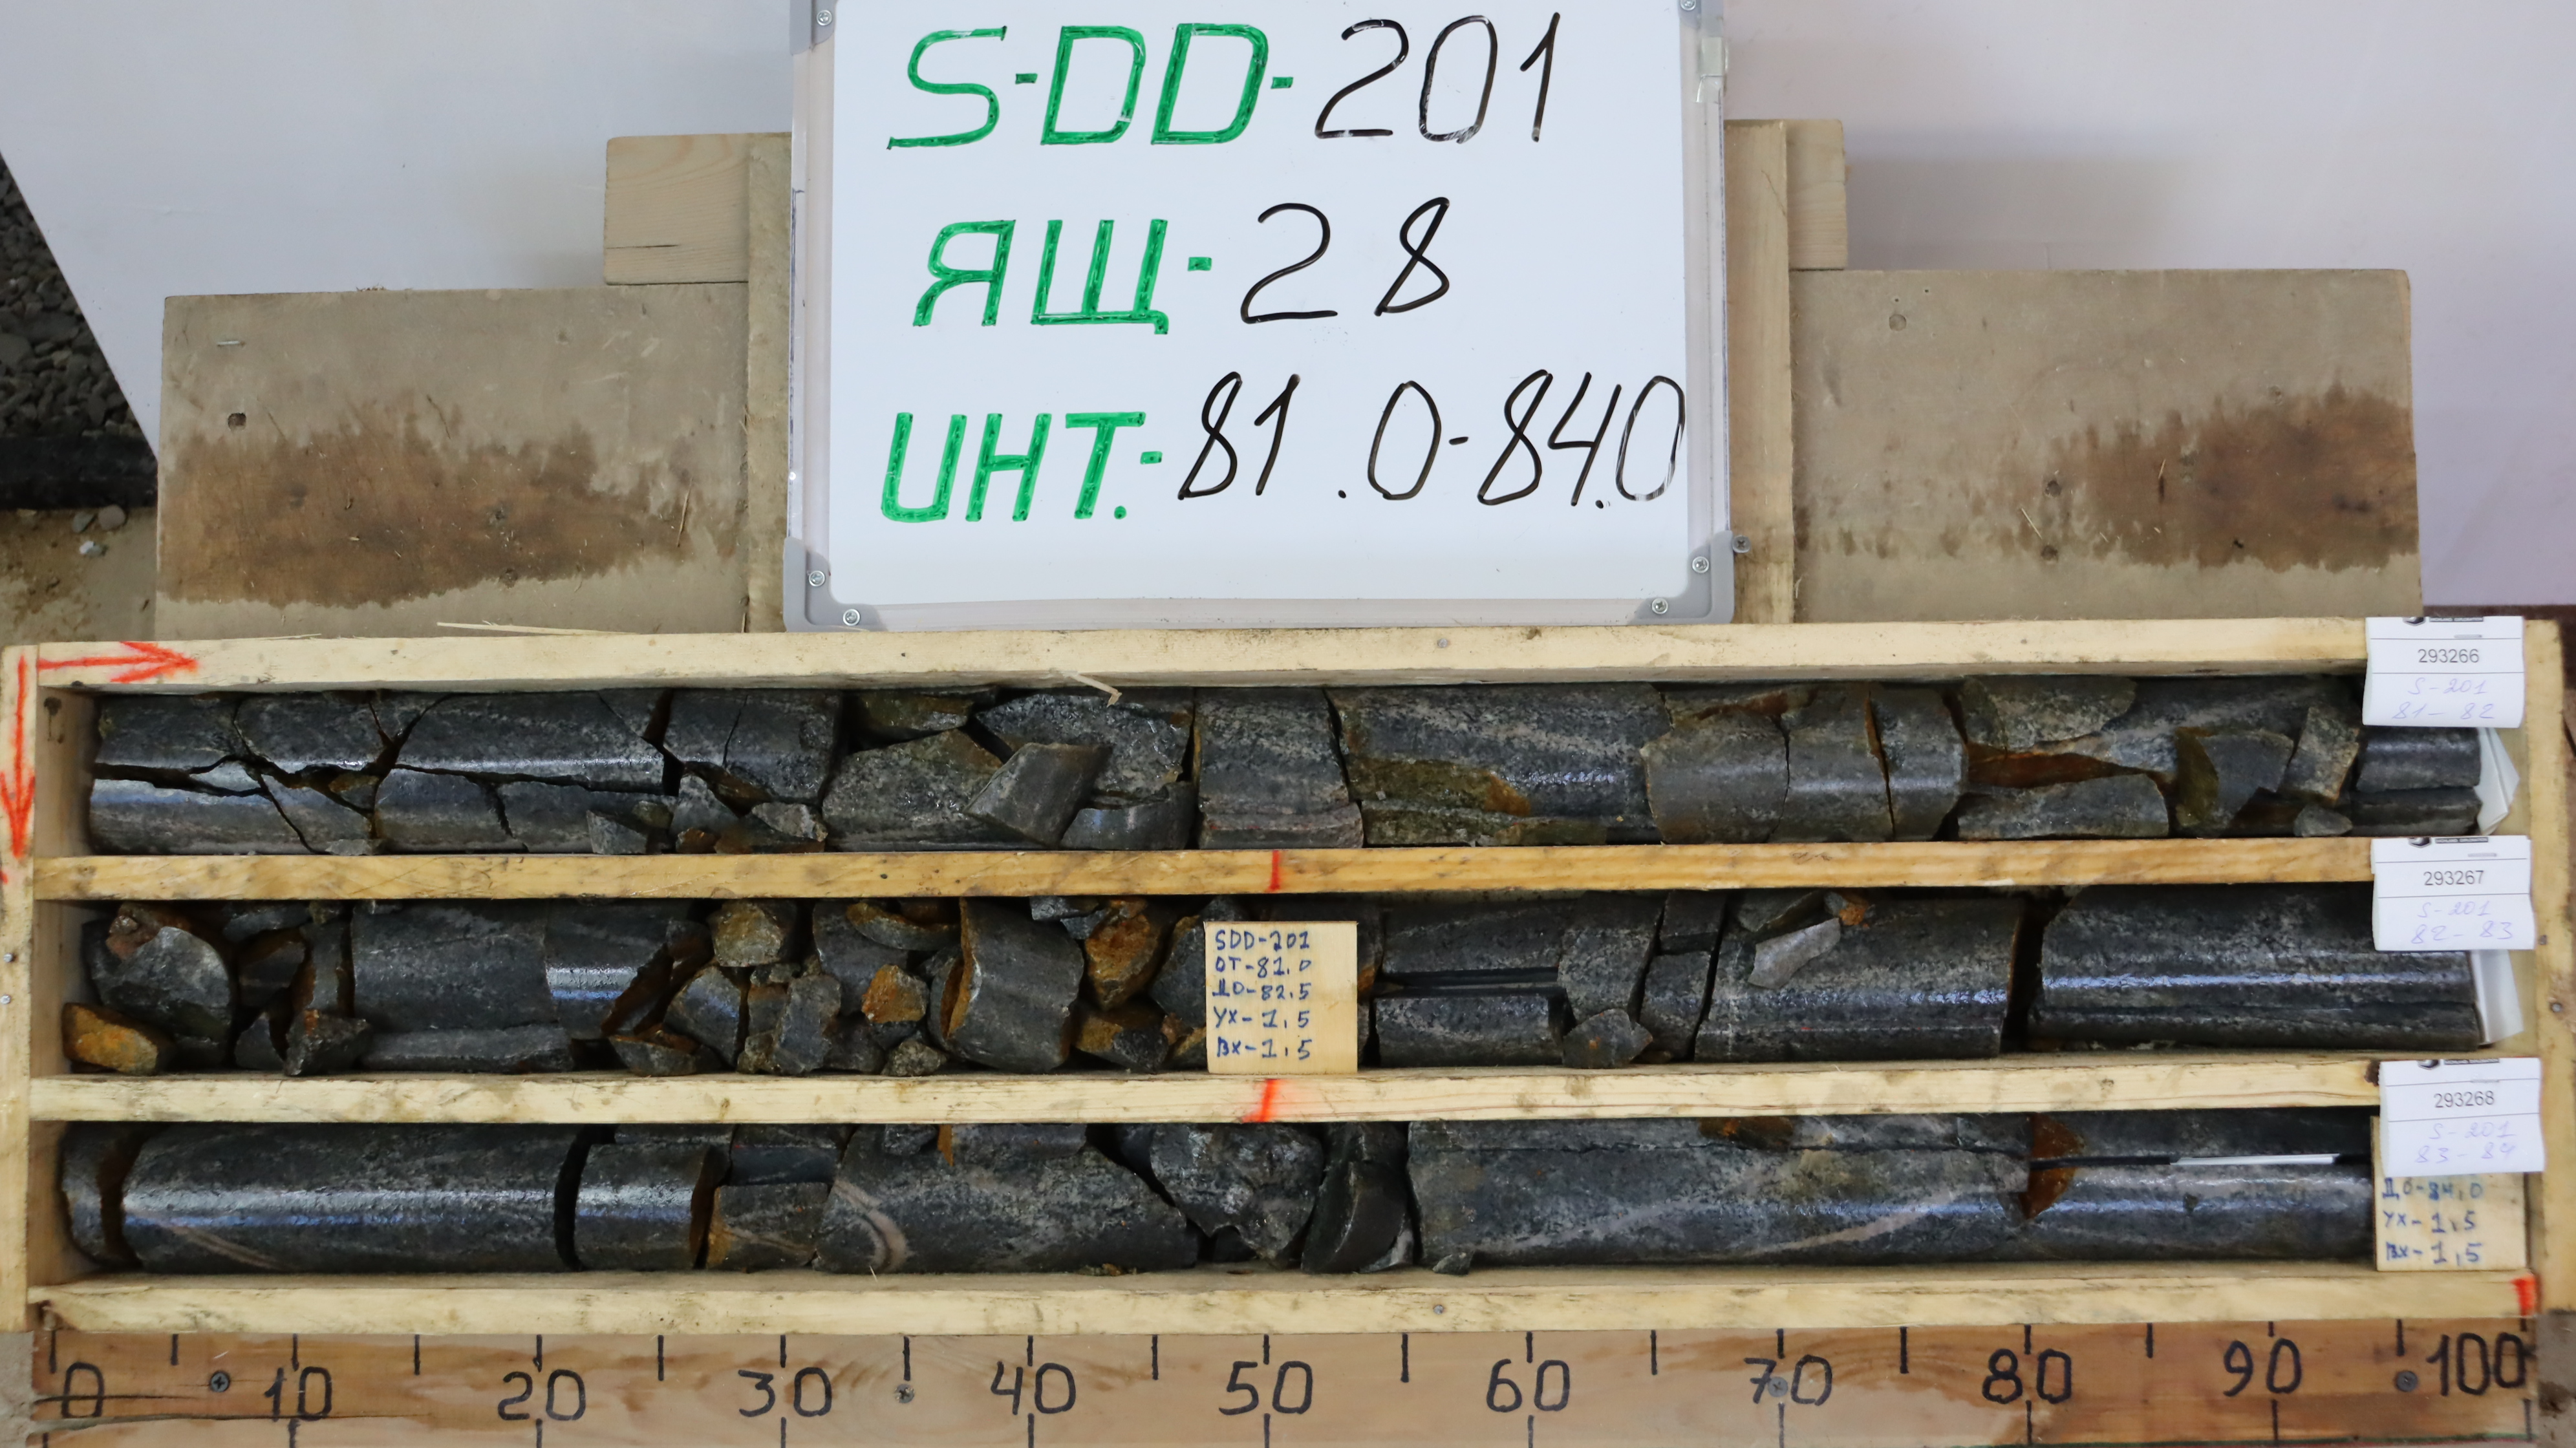 S-DD-201
ЯЩ-28
ИНТ.-81.0-84.0
293266
S-201
81-82
293267
S-201
82-83
SDD-201
ОТ-81.0
ДО-82,5
УХ-1,5
ВХ-1,5
293268
S-201
83-84
ДО-84,0
УХ-1,5
ВХ-1,5
0 10 20 30 40 50 60 70 80 90 100